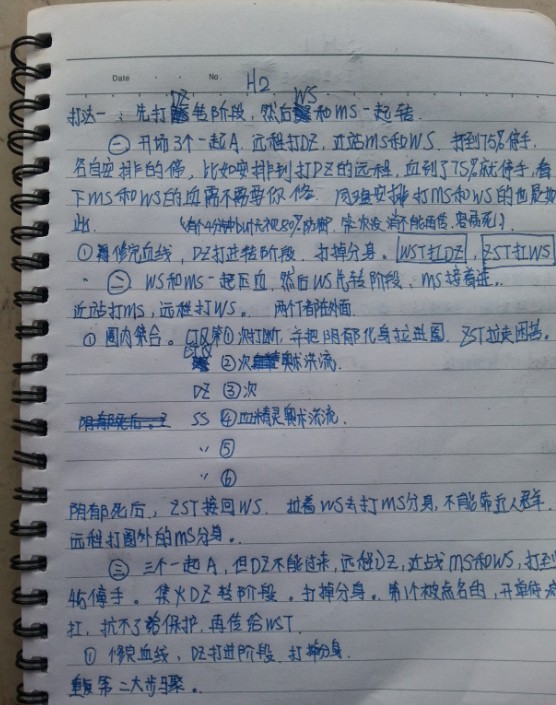 Date No. H2
打法一：先打DZ转阶段，然后WS和MS一起转.
㊀ 开场3个一起A. 远程打DZ，近战MS和WS. 打到75%停手.
各自安排的停，比如安排到打DZ的远程，血到了75%就停手，看
下MS和WS的血需不需要你修. 同理安排打MS和WS的也是如
此.
① 修完血线，DZ打进转阶段. 打掉分身. WST扛DZ，ZST扛WS
㊁ WS和MS一起压血，然后WS先转阶段、MS接着进.
近战打MS，远程打WS. 两个T都在外面.
① 圈内集合. 第①次打断，并把阴郁化身拉进圈. ZST拉走困兽.
②次奥术洪流.
DZ ③次
SS ④血精灵奥术洪流.
〃 ⑤
〃 ⑥
阴郁死后，ZST接回WS. 拉着WS去打MS分身，不能靠近人群.
远程打圈外的MS分身.
㊂ 三个一起A，但DZ不能过来，远程DZ，近战MS和WS，打到
46停手. 集火DZ转阶段. 打掉分身. 第1个被点名的，开单体
扛，抗不了给保护，再传给WST.
① 修完血线、DZ打进阶段. 打掉分身.
重复第二大步骤.